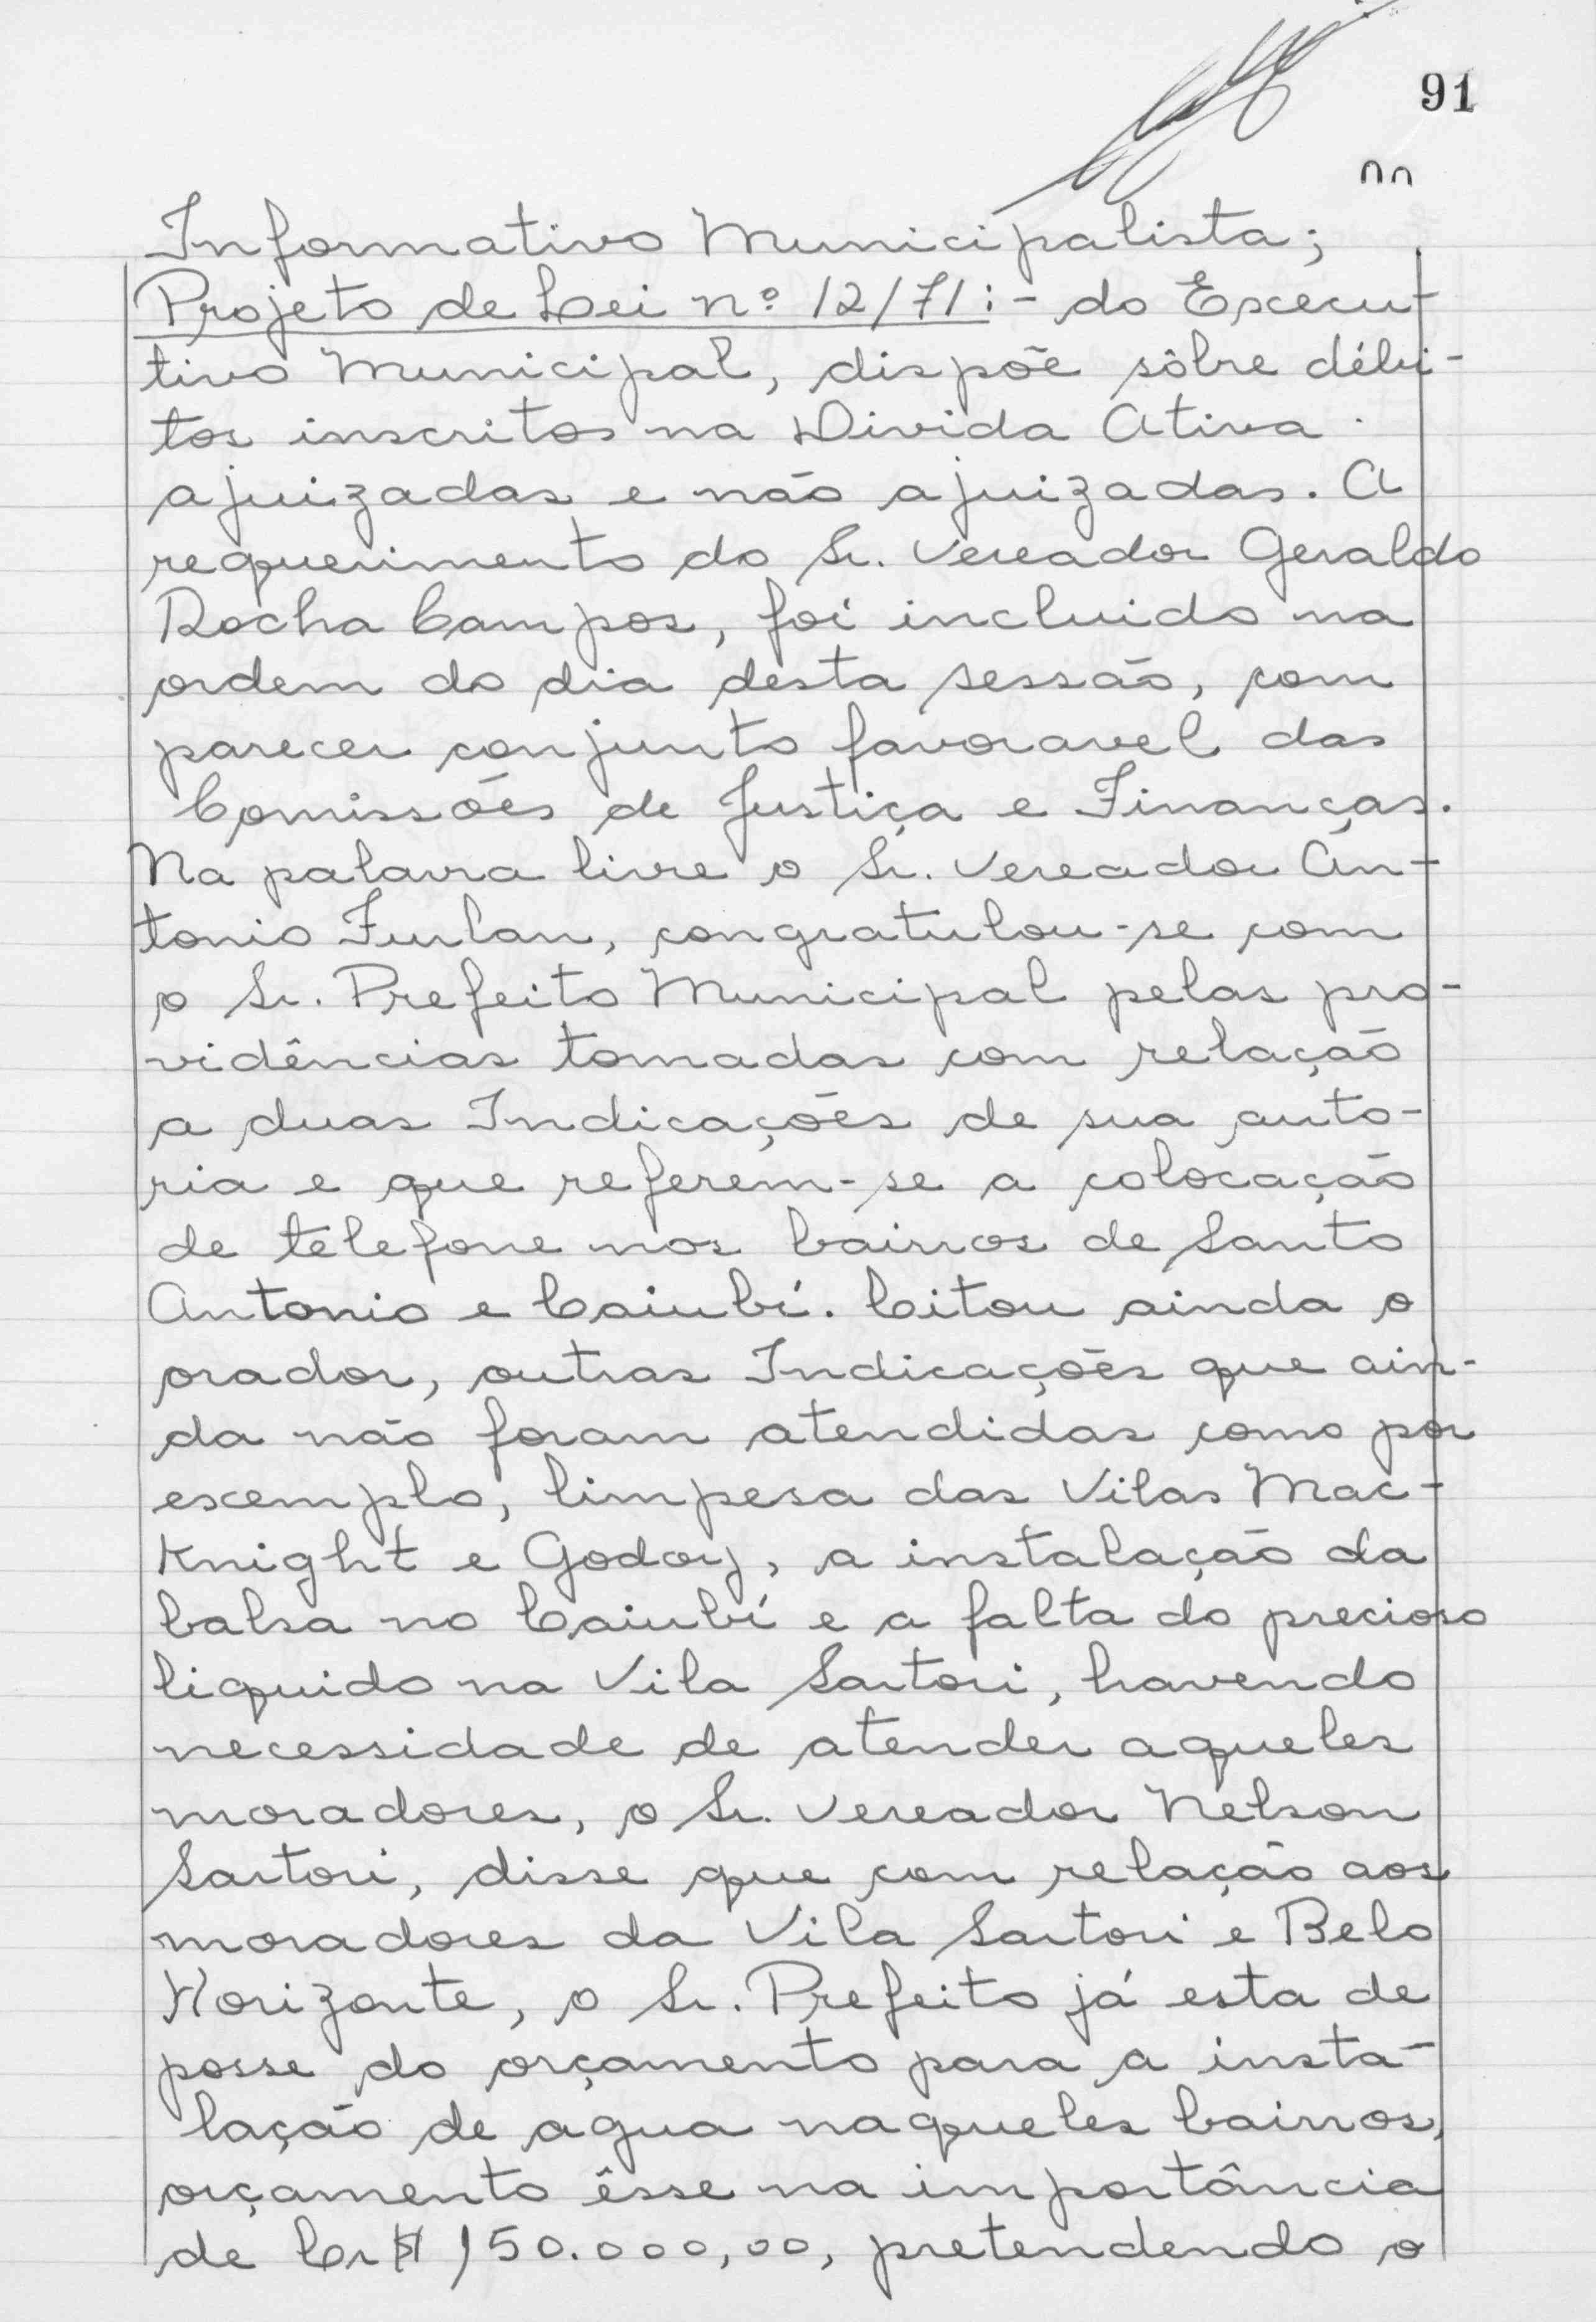 91
Informativo Municipalista;
Projeto de Lei nº 12/71:- do Execu-
tivo Municipal, dispõe sôbre débi-
tos inscritos na Divida Ativa
ajuizadas e não ajuizadas. A
requerimento do Sr. Vereador Geraldo
Rocha Campos, foi incluido na
ordem do dia desta sessão, com
parecer conjunto favoravel das
Comissões de Justiça e Finanças.
Na palavra livre o Sr. Vereador An-
tonio Furlan, congratulou-se com
o Sr. Prefeito Municipal pelas pro-
vidências tomadas com relação
a duas Indicações de sua auto-
ria e que referem-se a colocação
de telefone nos bairros de Santo
Antonio e Caiubí. Citou ainda o
orador, outras Indicações que ain-
da não foram atendidas como por
exemplo, limpesa das Vilas Mac-
Knight e Godoy, a instalação da
balsa no Caiubí e a falta do precioso
liquido na Vila Sartori, havendo
necessidade de atender aqueles
moradores, o Sr. Vereador Nelson
Sartori, disse que com relação aos
moradores da Vila Sartori e Belo
Horizonte, o Sr. Prefeito já esta de
posse do orçamento para a insta-
lação de agua naqueles bairros,
orçamento êsse na importância
de Cr$ 150.000,00, pretendendo o